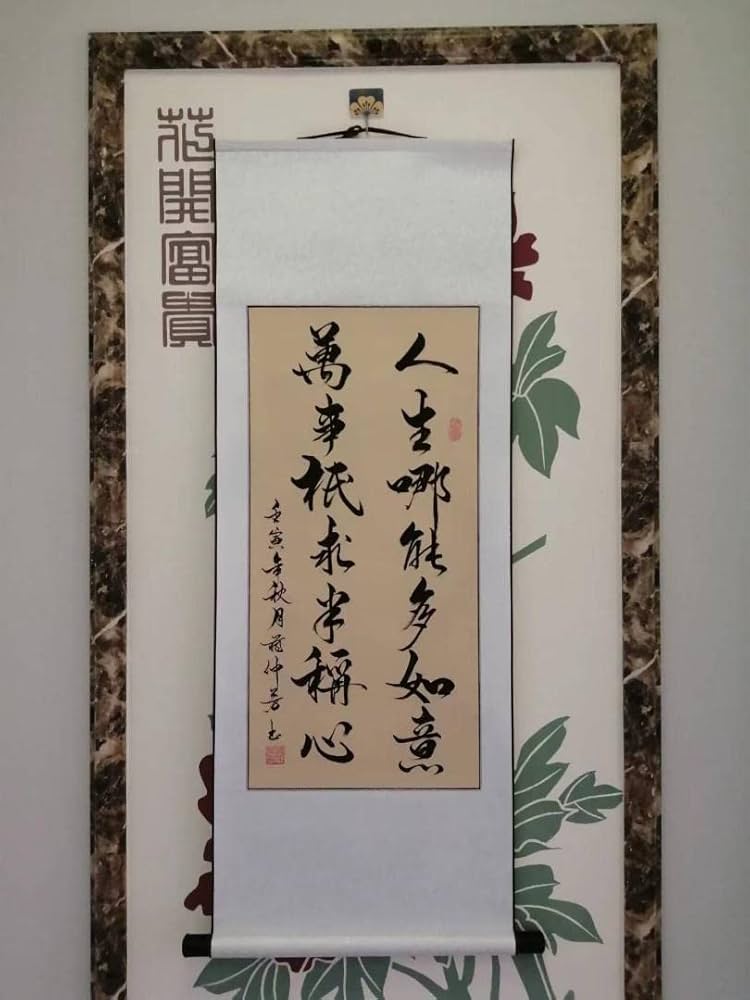 人生哪能多如意
萬事袛求半稱心
壬寅年秋月蔣仲芳書
花開富貴